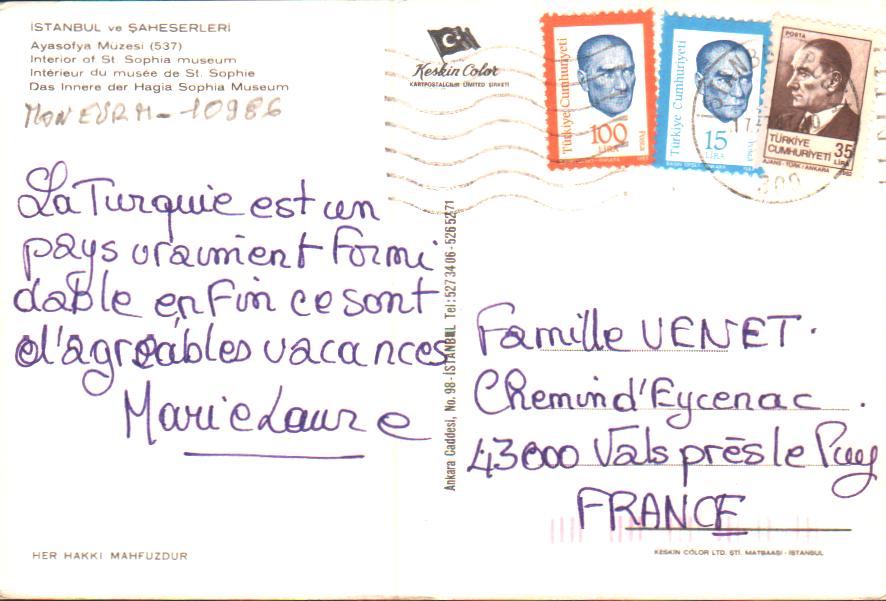 İSTANBUL ve ŞAHESERLERİ
Ayasofya Müzesi (537)
Interior of St. Sophia museum
Intérieur du musée de St. Sophie
Das Innere der Hagia Sophia Museum
10986
La Turquie est un
pays vraiment formi
dable enfin ce sont
d'agréables vacances
Marie Laure
HER HAKKI MAHFUZDUR
Keskin Color
KARTPOSTALCILIK LİMİTED ŞİRKETİ
Ankara Caddesi, No. 98 - İSTANBUL Tel: 527 34 06 - 526 52 71
Türkiye Cumhuriyeti
100
LİRA
Posta
Türkiye Cumhuriyeti
15
LİRA
Posta
POSTA
TÜRKİYE
CUMHURİYETİ
35
LİRA
AJANS-TÜRK/ANKARA
Famille VENET.
Chemin d'Eycenac.
43000 Vals près le Puy
FRANCE
KESKIN COLOR LTD. ŞTİ. MATBAASI - İSTANBUL